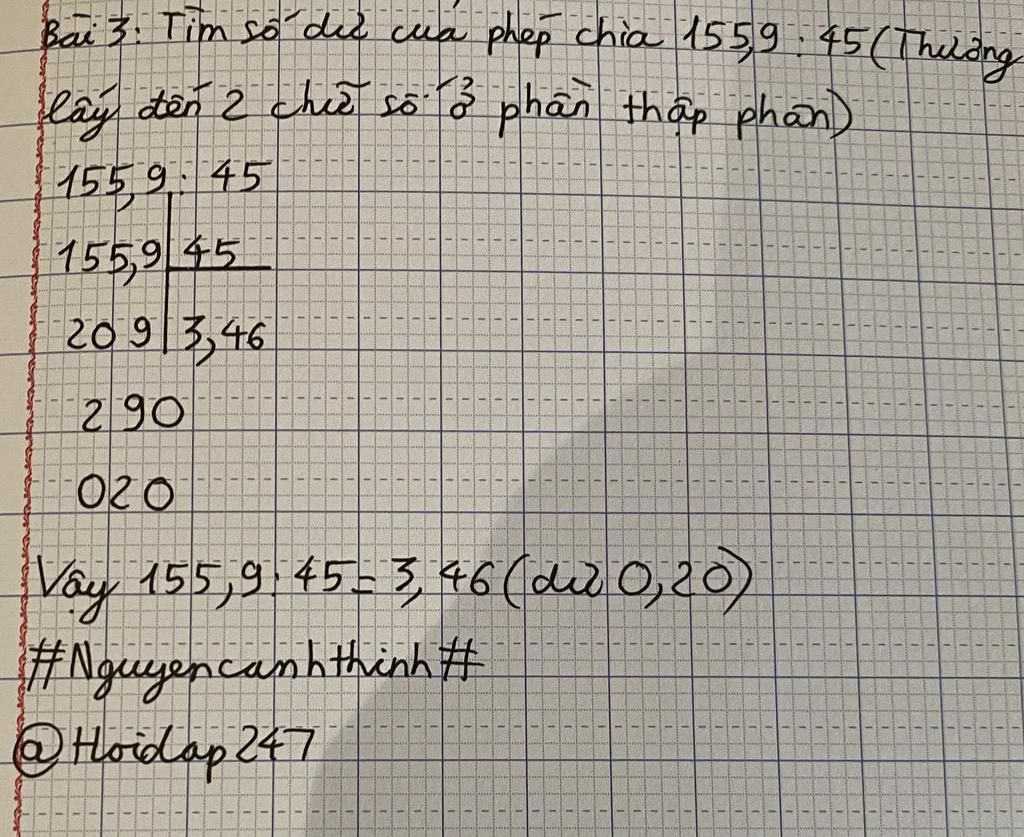 Bài 3: Tìm số dư của phép chia 155,9 : 45 (Thương
lấy đến 2 chữ số ở phần thập phân)
155,9 : 45
155,9 45
209 3,46
290
020
Vậy 155,9 : 45 = 3,46 (dư 0,20)
#Nguyencanhthinh#
@Hoidap247